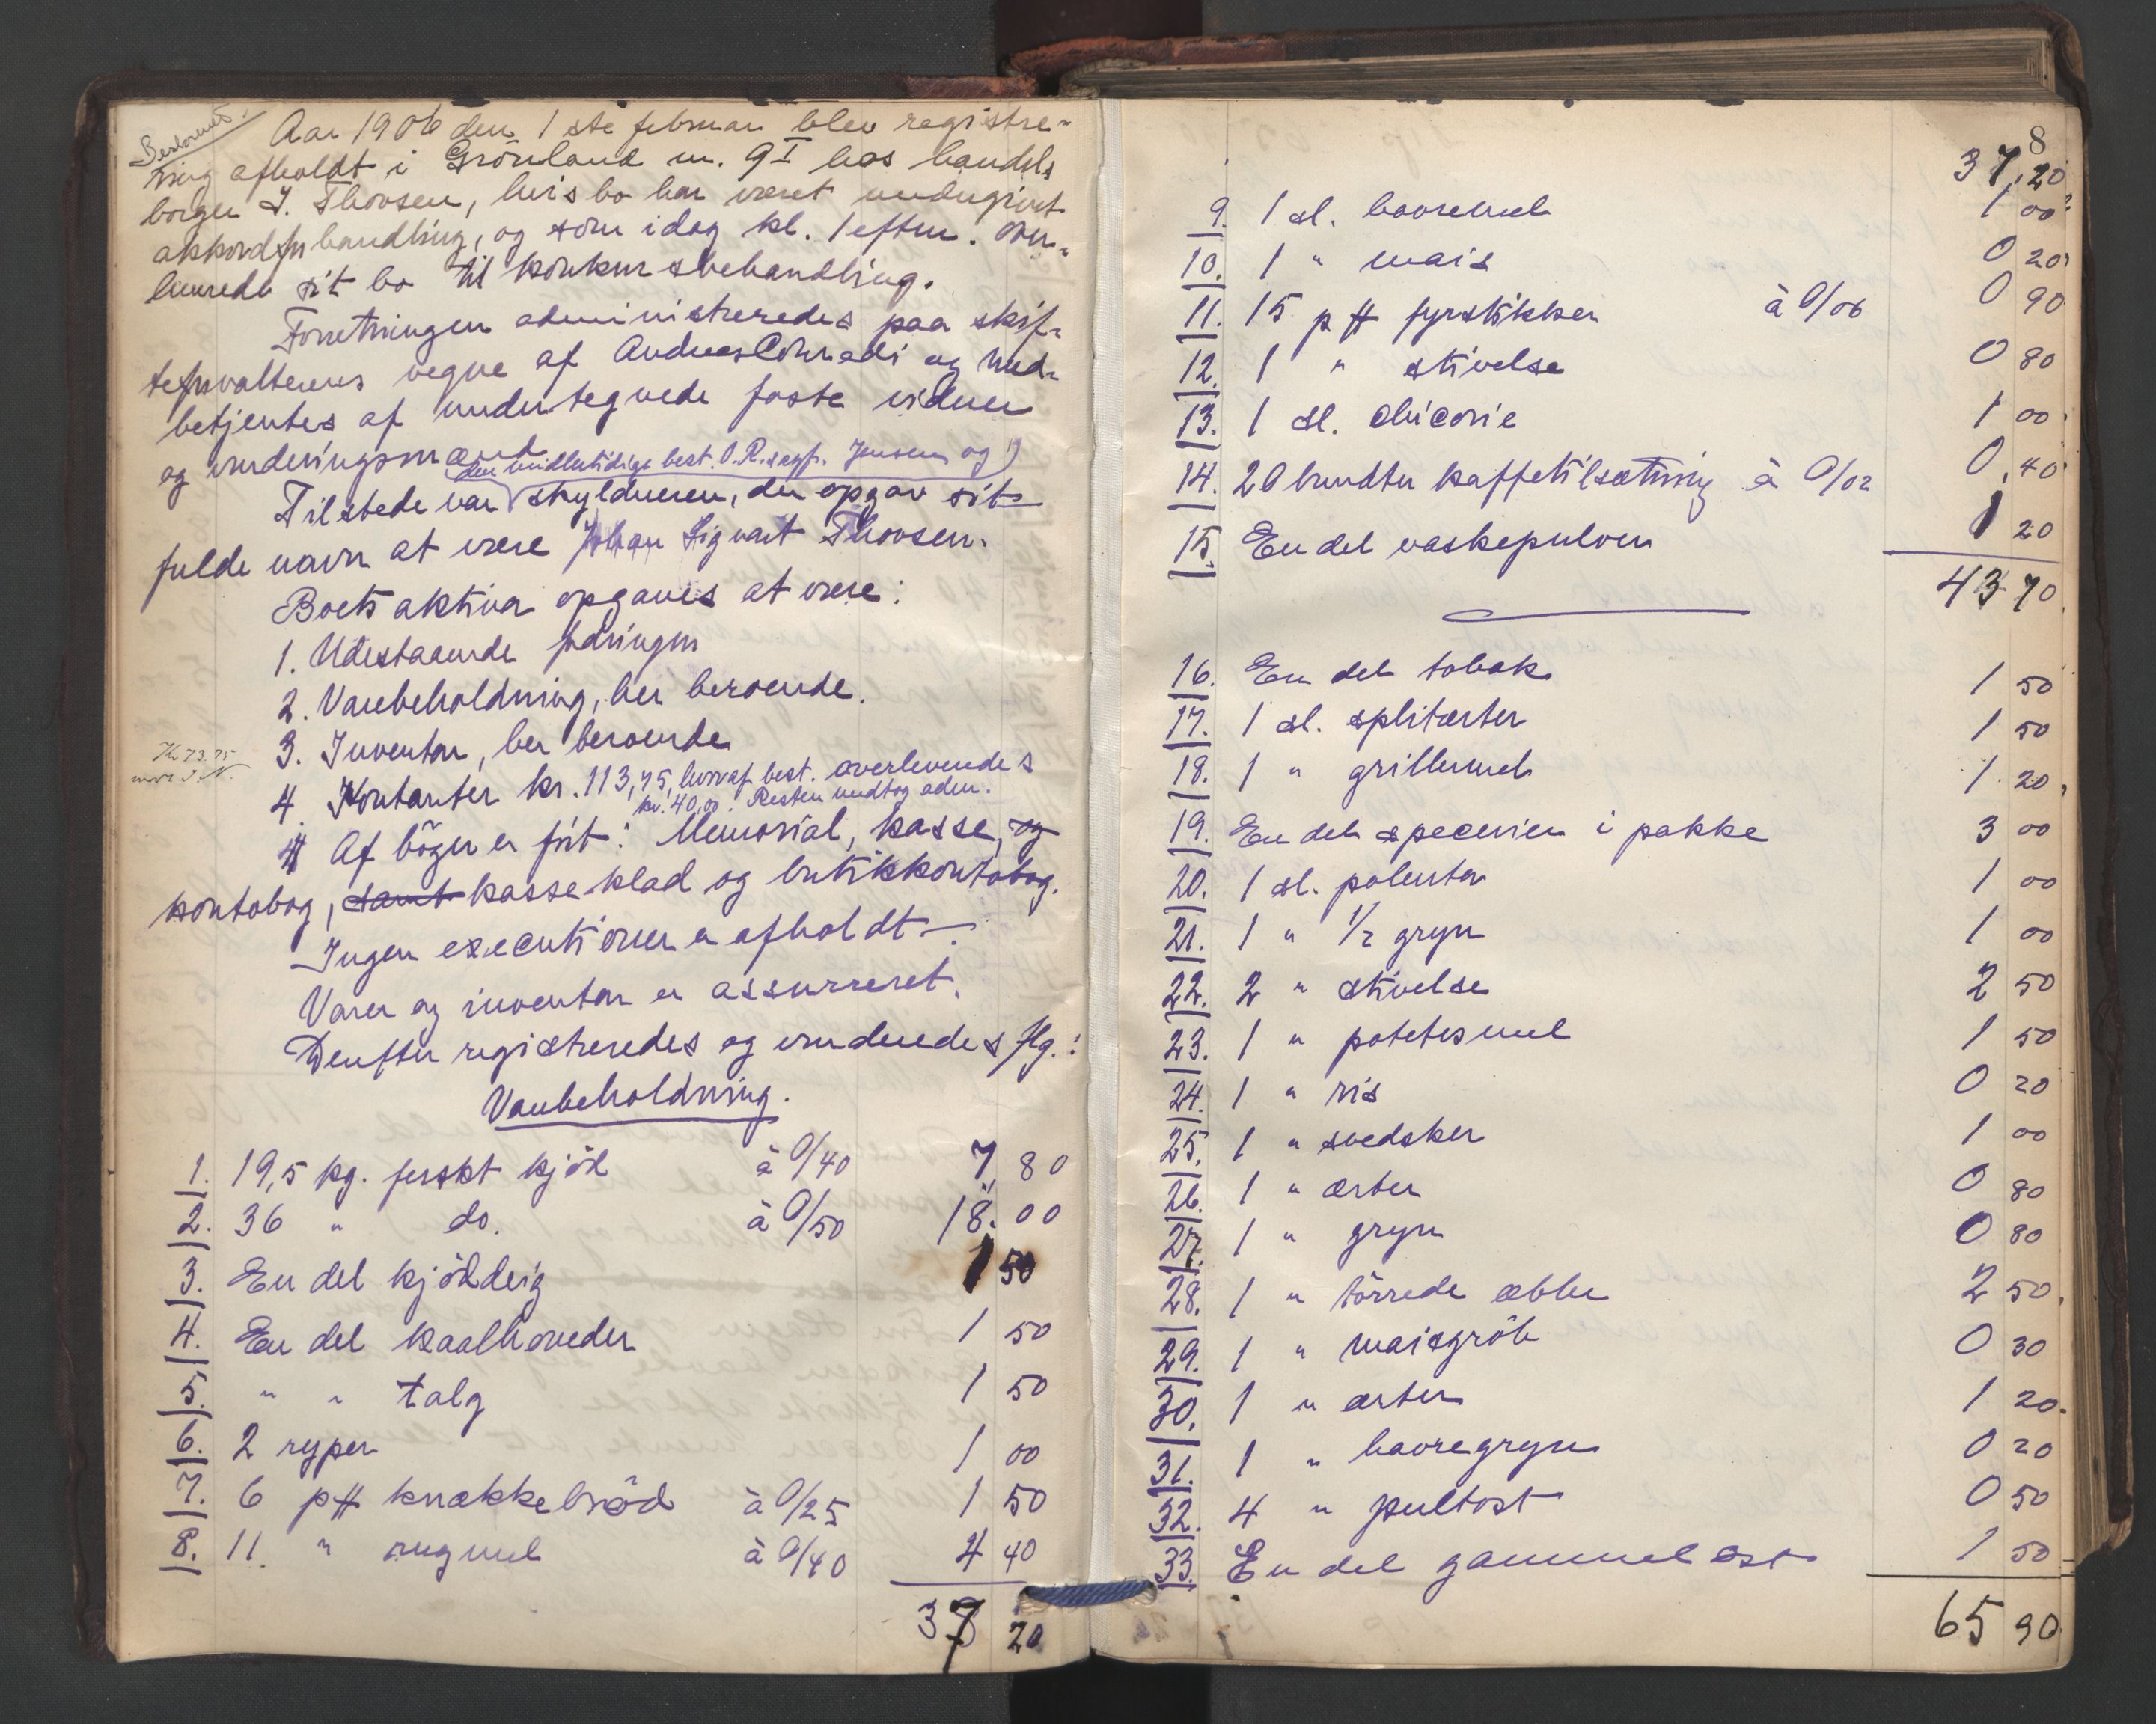 Aar 1906 den 1ste februar blev registre-
ring afholdt i Grönland n. 9 I hos handels
borger J. Thovsen, hvis bo har været undergivet
akkordforhandling, og som idag kl. 1 efterm. over-
leverede sit bo til konkursbehandling.
Forretningen administreredes paa skif-
teforvalterens vegne af Andreas Conradi og med-
betjentes af undertegnede faste vidner
og vurderingsmænd
den midlertidige best. O.R.sagf. Jensen og
Tilstede var skyldneren, der opgav sit
fulde navn at være Johan Sigvart Thovsen.
Boets aktiva opgaves at være:
1. Udestaaende fordringer
2. Varebeholdning, her beroende.
3. Inventar, her beroende
4. Kontanter kr. 113,75, hvoraf best. overlevendes
kr. 40,00. Resten modtog adm.
Af böger er fört: Memorial, kasse, og
kontobog, samt kasseklad og butikkontobog.
Ingen executioner er afholdt.
Varer og inventar er assurreret.
Derefter registreredes og vurderedes flg.:
Varebeholdning.
1. 19,5 kg. ferskt kjöd à 0/40 7,80
2. 36 " do. à 0/50 18.00
3. En del kjöddeig 1 50
4. En del kaalhoveder 1 50
5. " " talg 1 50
6. 2 ryper 1 00
7. 6 pk knækkebröd à 0/25 1 50
8. 11 " rugmel à 0/40 4 40
37 20
8
37,20
9. 1 sk. havremel 1 00
10. 1 " mais 0 20
11. 15 pk fyrstikker à 0/06 0 90
12. 1 " stivelse 0 80
13. 1 sk. chicorie 1 00
14. 20 bundter kaffetilsætning à 0/02 0,40
15. En del vaskepulver 1 20
43 70
16. En del tobak 1 50
17. 1 sk. splitærter 1 50
18. 1 " grillermel 1 20
19. En del specerier i pakke 3 00
20. 1 sk. polenta 1 00
21. 1 " 1/2 gryn 1 00
22. 2 " stivelse 2 50
23. 1 " potetesmel 1 50
24. 1 " ris 0 20
25. 1 " svedsker 1 00
26. 1 " ærter 0 80
27. 1 " gryn 0 80
28. 1 " törrede æbler 2 50
29. 1 " maisgröb 0 30
30. 1 " ærter 1 20
31. 1 " havregryn 0 20
32. 4 " pultost 0 50
33. En del gammelost 1 50
65 90